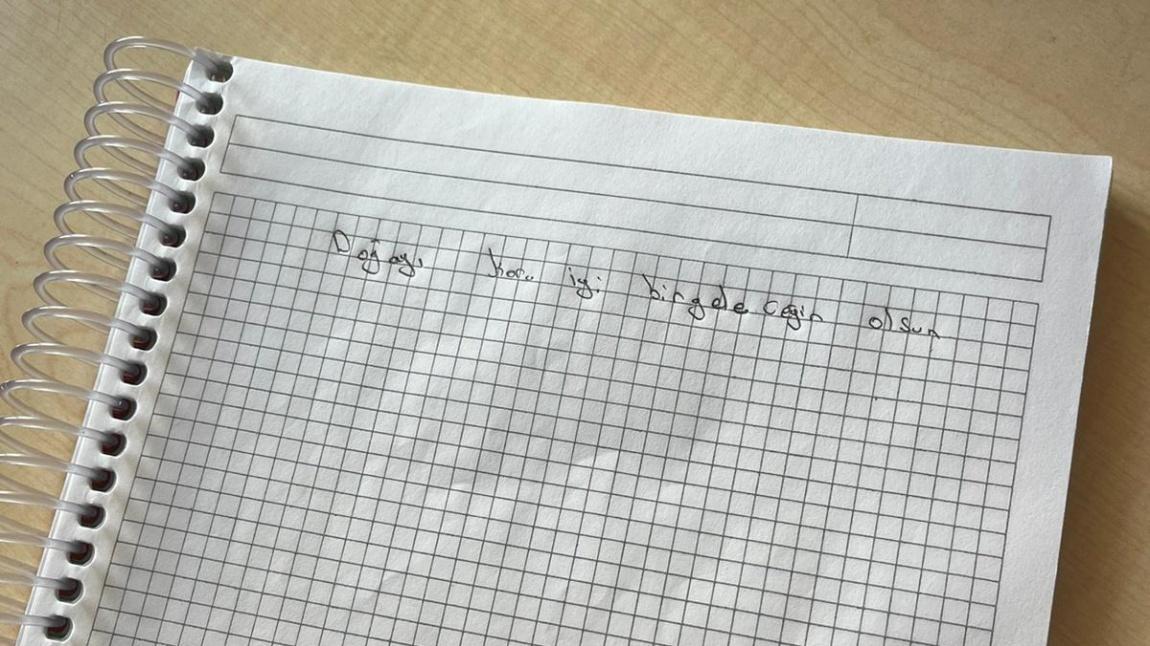 Doğayı koru iyi birgeleceğin olsun